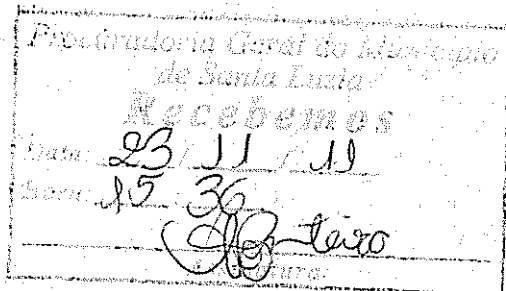 Procuradoria Geral do Município
de Santa Luzia
Recebemos
Data: 23 / 11 / 11
Hora: 15 36
Assinatura